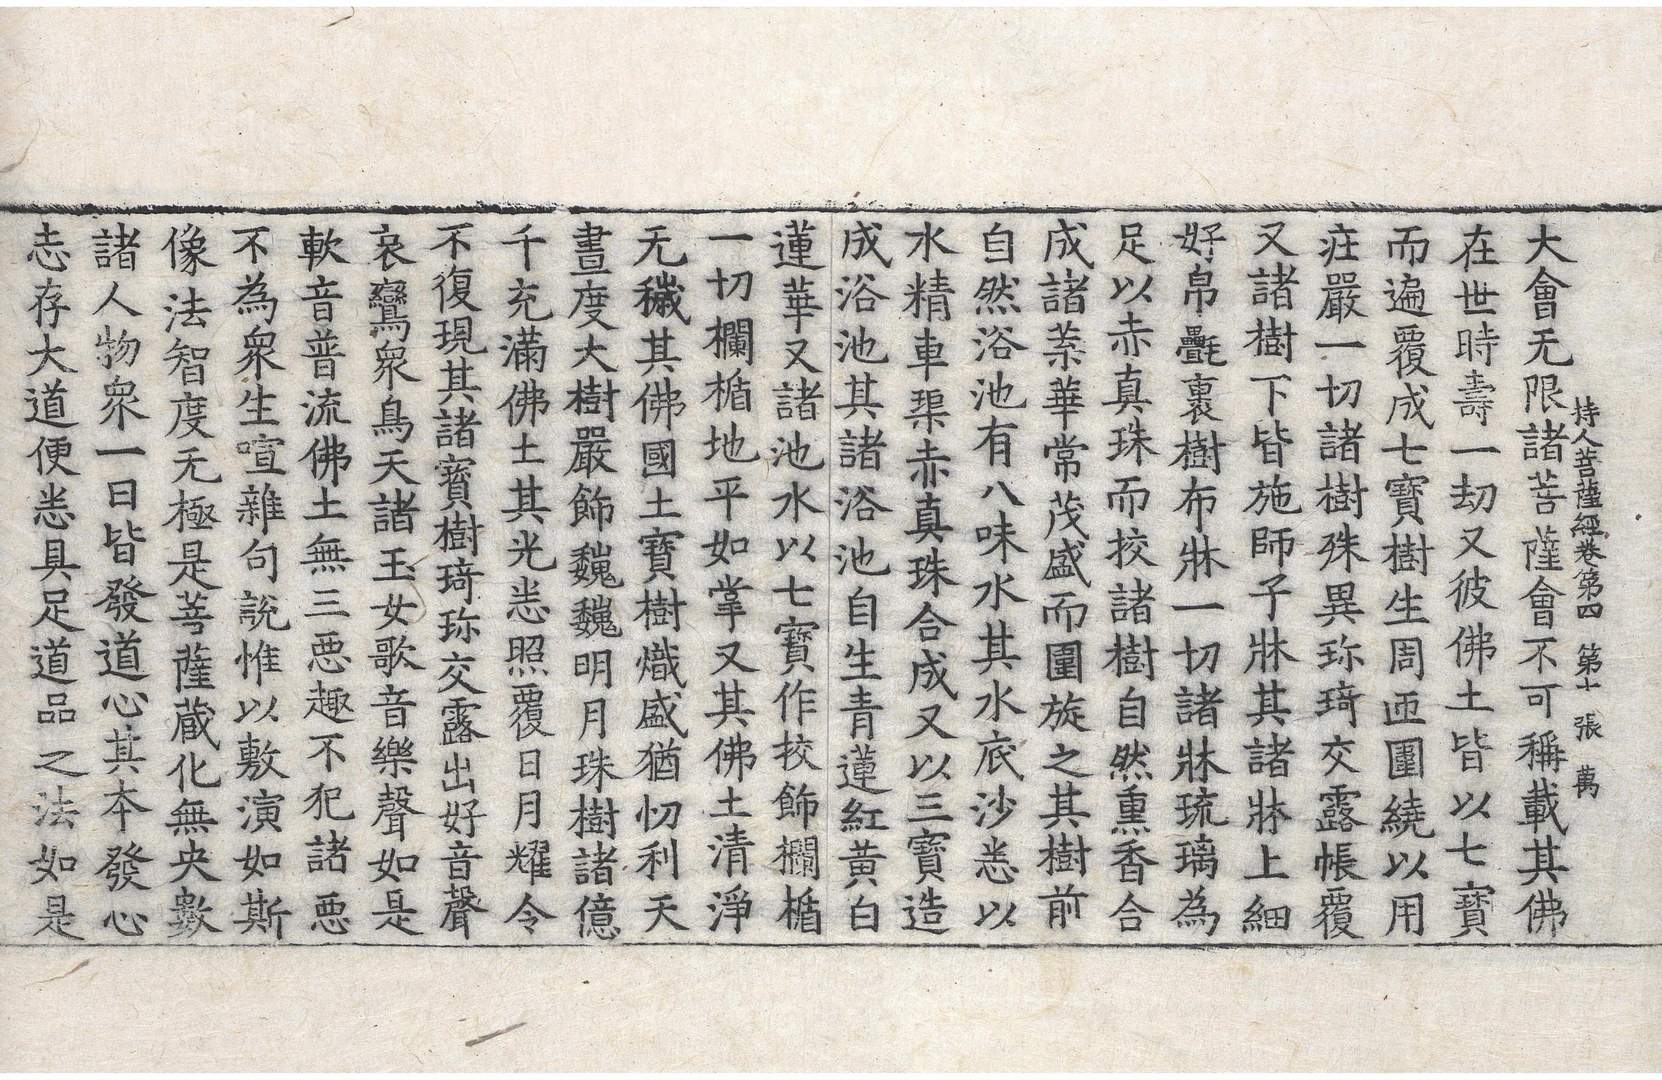 持人菩薩經卷第四　第十張　萬
大會无限諸菩薩會不可稱載其佛
在世時壽一劫又彼佛土皆以七寶
而遍覆成七寶樹生周迊圍繞以用
疘嚴一切諸樹殊異珎琦交露帳覆
又諸樹下皆施師子牀其諸牀上細
好帛疊裹樹布牀一切諸牀琉璃為
足以赤真珠而挍諸樹自然熏香合
成諸菓華常茂盛而圍旋之其樹前
自然浴池有八味水其水底沙悉以
水精車璖赤真珠合成又以三寶造
成浴池其諸浴池自生青蓮紅黄白
蓮華又諸池水以七寶作挍飾欄楯
一切欄楯地平如掌又其佛土清淨
无穢其佛國土寶樹熾盛猶忉利天
晝度大樹嚴飾巍巍明月珠樹諸億
千充滿佛土其光悉照覆日月耀令
不復現其諸寶樹琦珎交露出好音聲
哀鸞衆鳥天諸玉女歌音樂聲如是
軟音普流佛土無三惡趣不犯諸惡
不為衆生喧雜句說惟以敷演如斯
像法智度无極是菩薩蔵化無央數
諸人物衆一日皆發道心其本發心
志存大道便悉具足道品之法如是